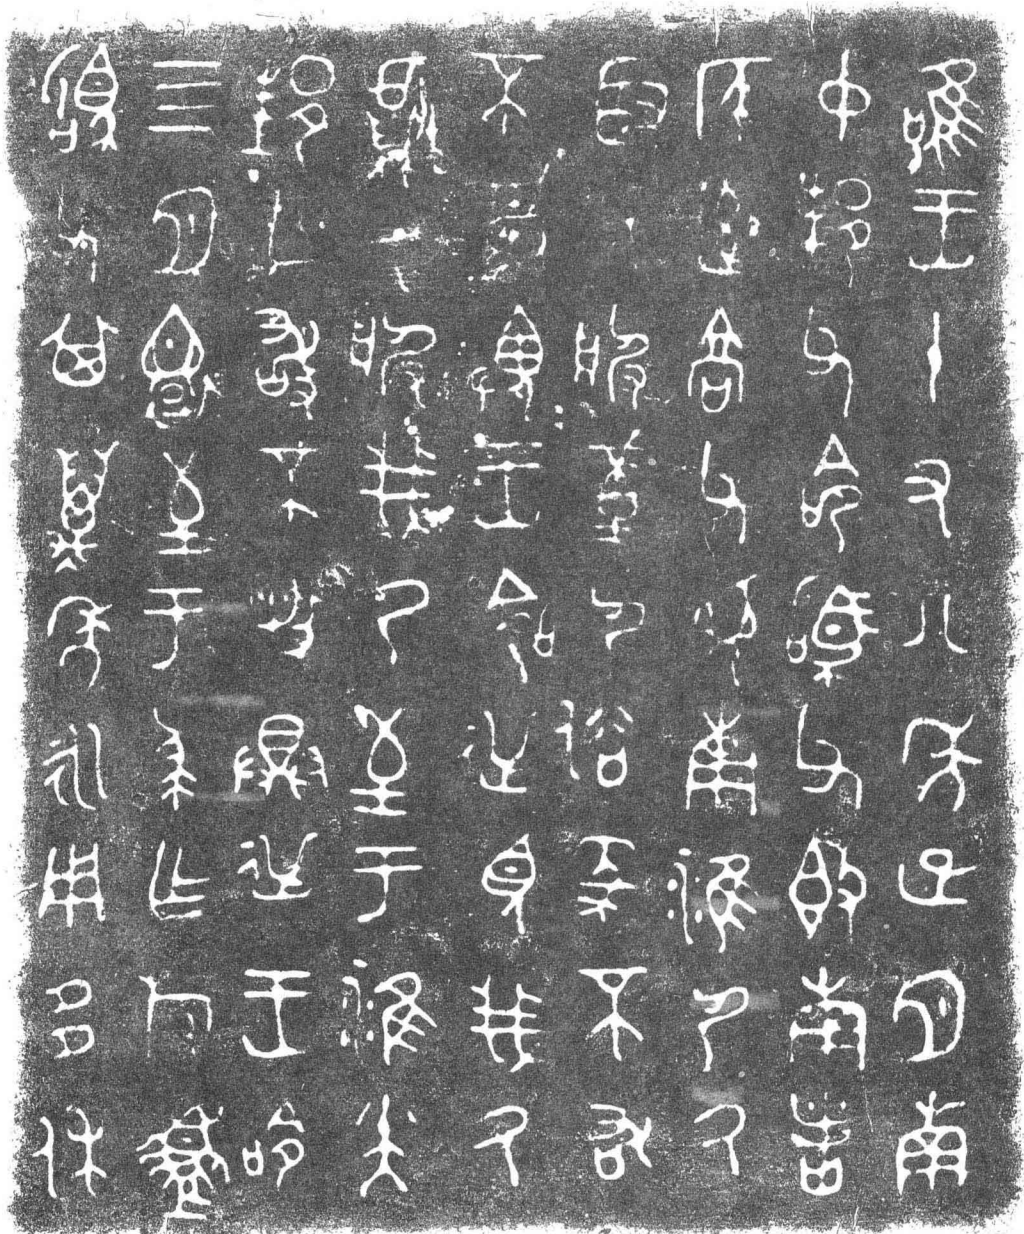 隹王十又八年正月南
中邦父命駒父即南者
侯率高父見南淮尸氒
取氒服堇尸俗豙不敢
不苟畏王命逆見我氒
獻氒服我乃至于淮小大
邦亡敢不具逆王命
四月還至于蔡乍旅盨
駒父其萬年永用多休